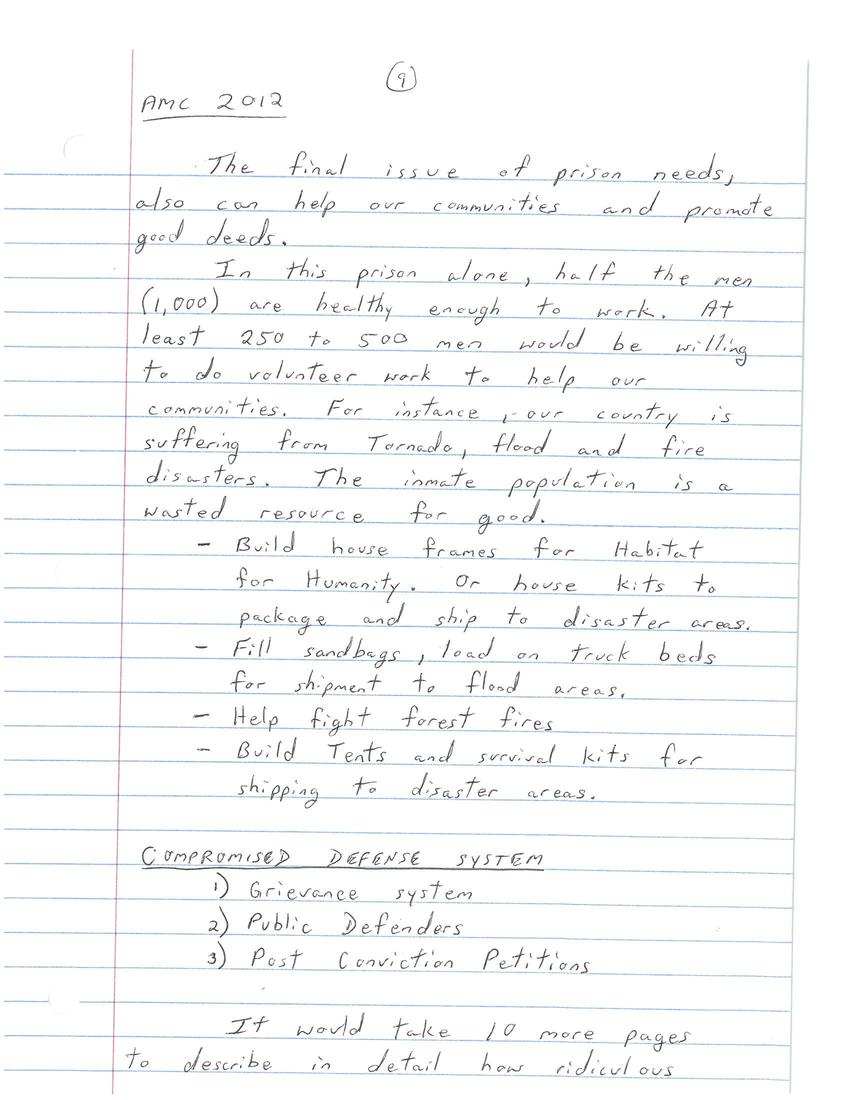 9
AMC 2012
The final issue of prison needs,
also can help our communities and promote
good deeds.
In this prison alone, half the men
(1,000) are healthy enough to work. At
least 250 to 500 men would be willing
to do volunteer work to help our
communities. For instance, our country is
suffering from Tornado, flood and fire
disasters. The inmate population is a
wasted resource for good.
- Build house frames for Habitat
for Humanity. Or house kits to
package and ship to disaster areas.
- Fill sandbags, load on truck beds
for shipment to flood areas.
- Help fight forest fires
- Build Tents and survival kits for
shipping to disaster areas.
COMPROMISED DEFENSE SYSTEM
1) Grievance system
2) Public Defenders
3) Post Conviction Petitions
It would take 10 more pages
to describe in detail how ridiculous